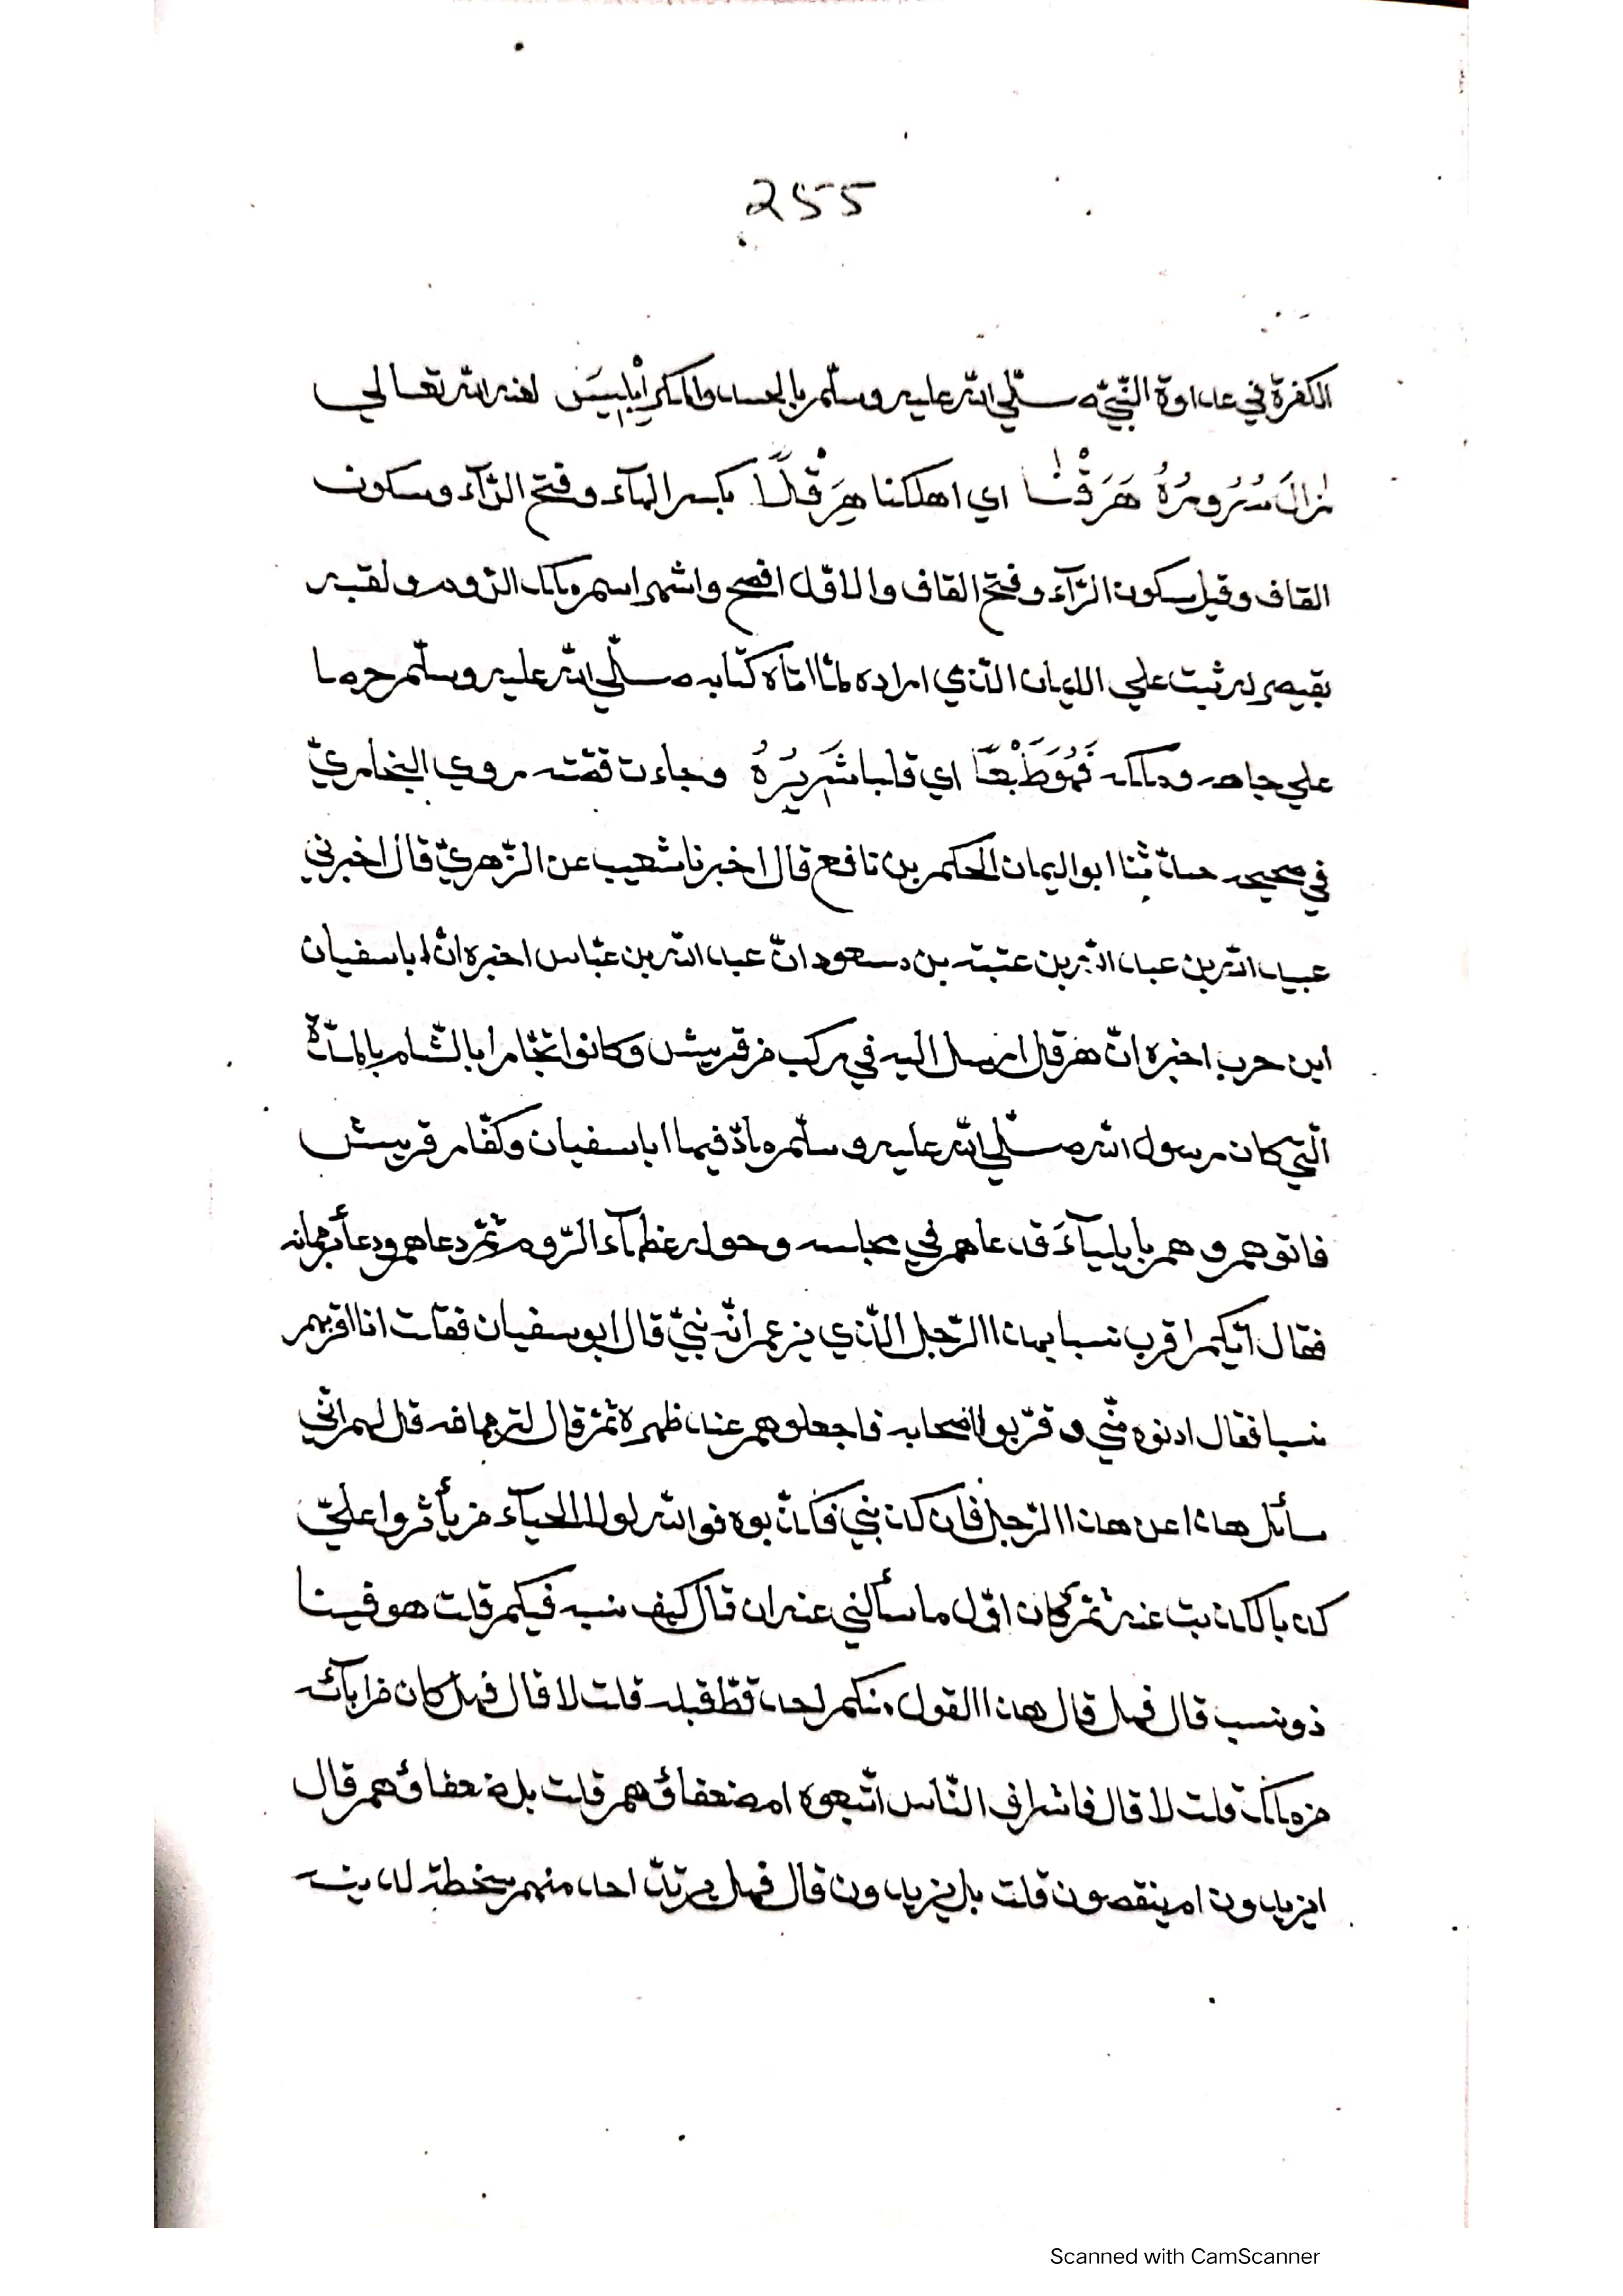 255
الكفرة في عداوة النّبيّ صلّي الله عليه وسلّم بالحسد والمكر إِبْلِيسَ لعنه الله تعالي
نزال سُرُورُهُ هَرَقْنَا اي اهلكنا هِرَقْلًا بكسر الهآء وفتح الرّآء وسكون
القاف وقيل بسكون الرّآء وفتح القاف والاوّل افصح واشهر اسم ملك الرّوم ولقبه
بقيصر لم يثبت علي الايمان الّذي اراده لمّا اتاه كتابه صلّي الله عليه وسلّم حرصا
علي جاهه وملكه فَهُوَ طَبْعًا اي قلبا شَرِيرُهُ وجاءت قصّته روي البخاريّ
في صحيحه حدّثنا ابو اليمان الحكم بن نافع قال اخبرنا شعيب عن الزّهريّ قال اخبرني
عبيد الله بن عبد الله بن عتبة بن مسعود انّ عبد الله بن عبّاس اخبره انّ ابا سفيان
ابن حرب اخبره انّ هرقل ارسل اليه في ركب من قريش وكانوا تجّارا بالشّام بالمدّة
الّتي كان رسول الله صلّي الله عليه وسلّم مادّ فيها ابا سفيان وكفّار قريش
فاتوهم وهم بايلياۤءَ فدعاهم في مجلسه وحوله عظمآء الرّوم ثمّ دعاهم ودعا بترجمانه
فقال ايّكم اقرب نسبا بهذا الرّجل الّذي يزعم انّه نبيّ قال ابو سفيان فقلت انا اقربهم
نسبا فقال ادنوه منّي وقرّبوا اصحابه فاجعلوهم عند ظهره ثمّ قال لترجمانه قل لهم انّي
سأئل هذا عن هذا الرّجل فان كذبني فكذّبوه فوالله لولا الحيآء من يأثروا عليّ
كذبا لكذبت عنه ثمّ كان اوّل ما سألني عنه ان قال كيف نسبه فيكم قلت هو فينا
ذو نسب قال فهل قال هذا القول منكم احد قطّ قبله قلت لا قال فهل كان من ابآئه
من ملك قلت لا قال فاشراف النّاس اتّبعوه ام ضعفاؤهم قلت بل ضعفاؤهم قال
ايزيدون ام ينقصون قلت بل يزيدون قال فهل يرتدّ احد منهم سخطة لدينه
Scanned with CamScanner